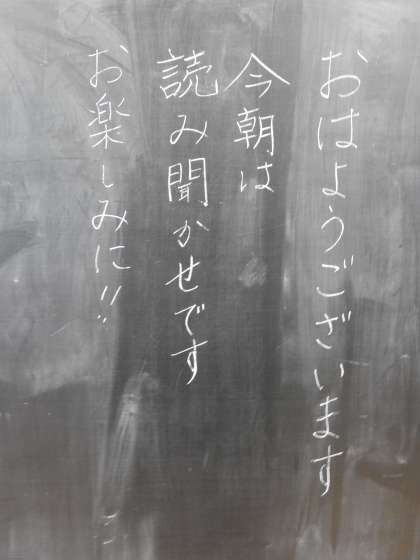 おはようございます
今朝は
読み聞かせです
お楽しみに!!